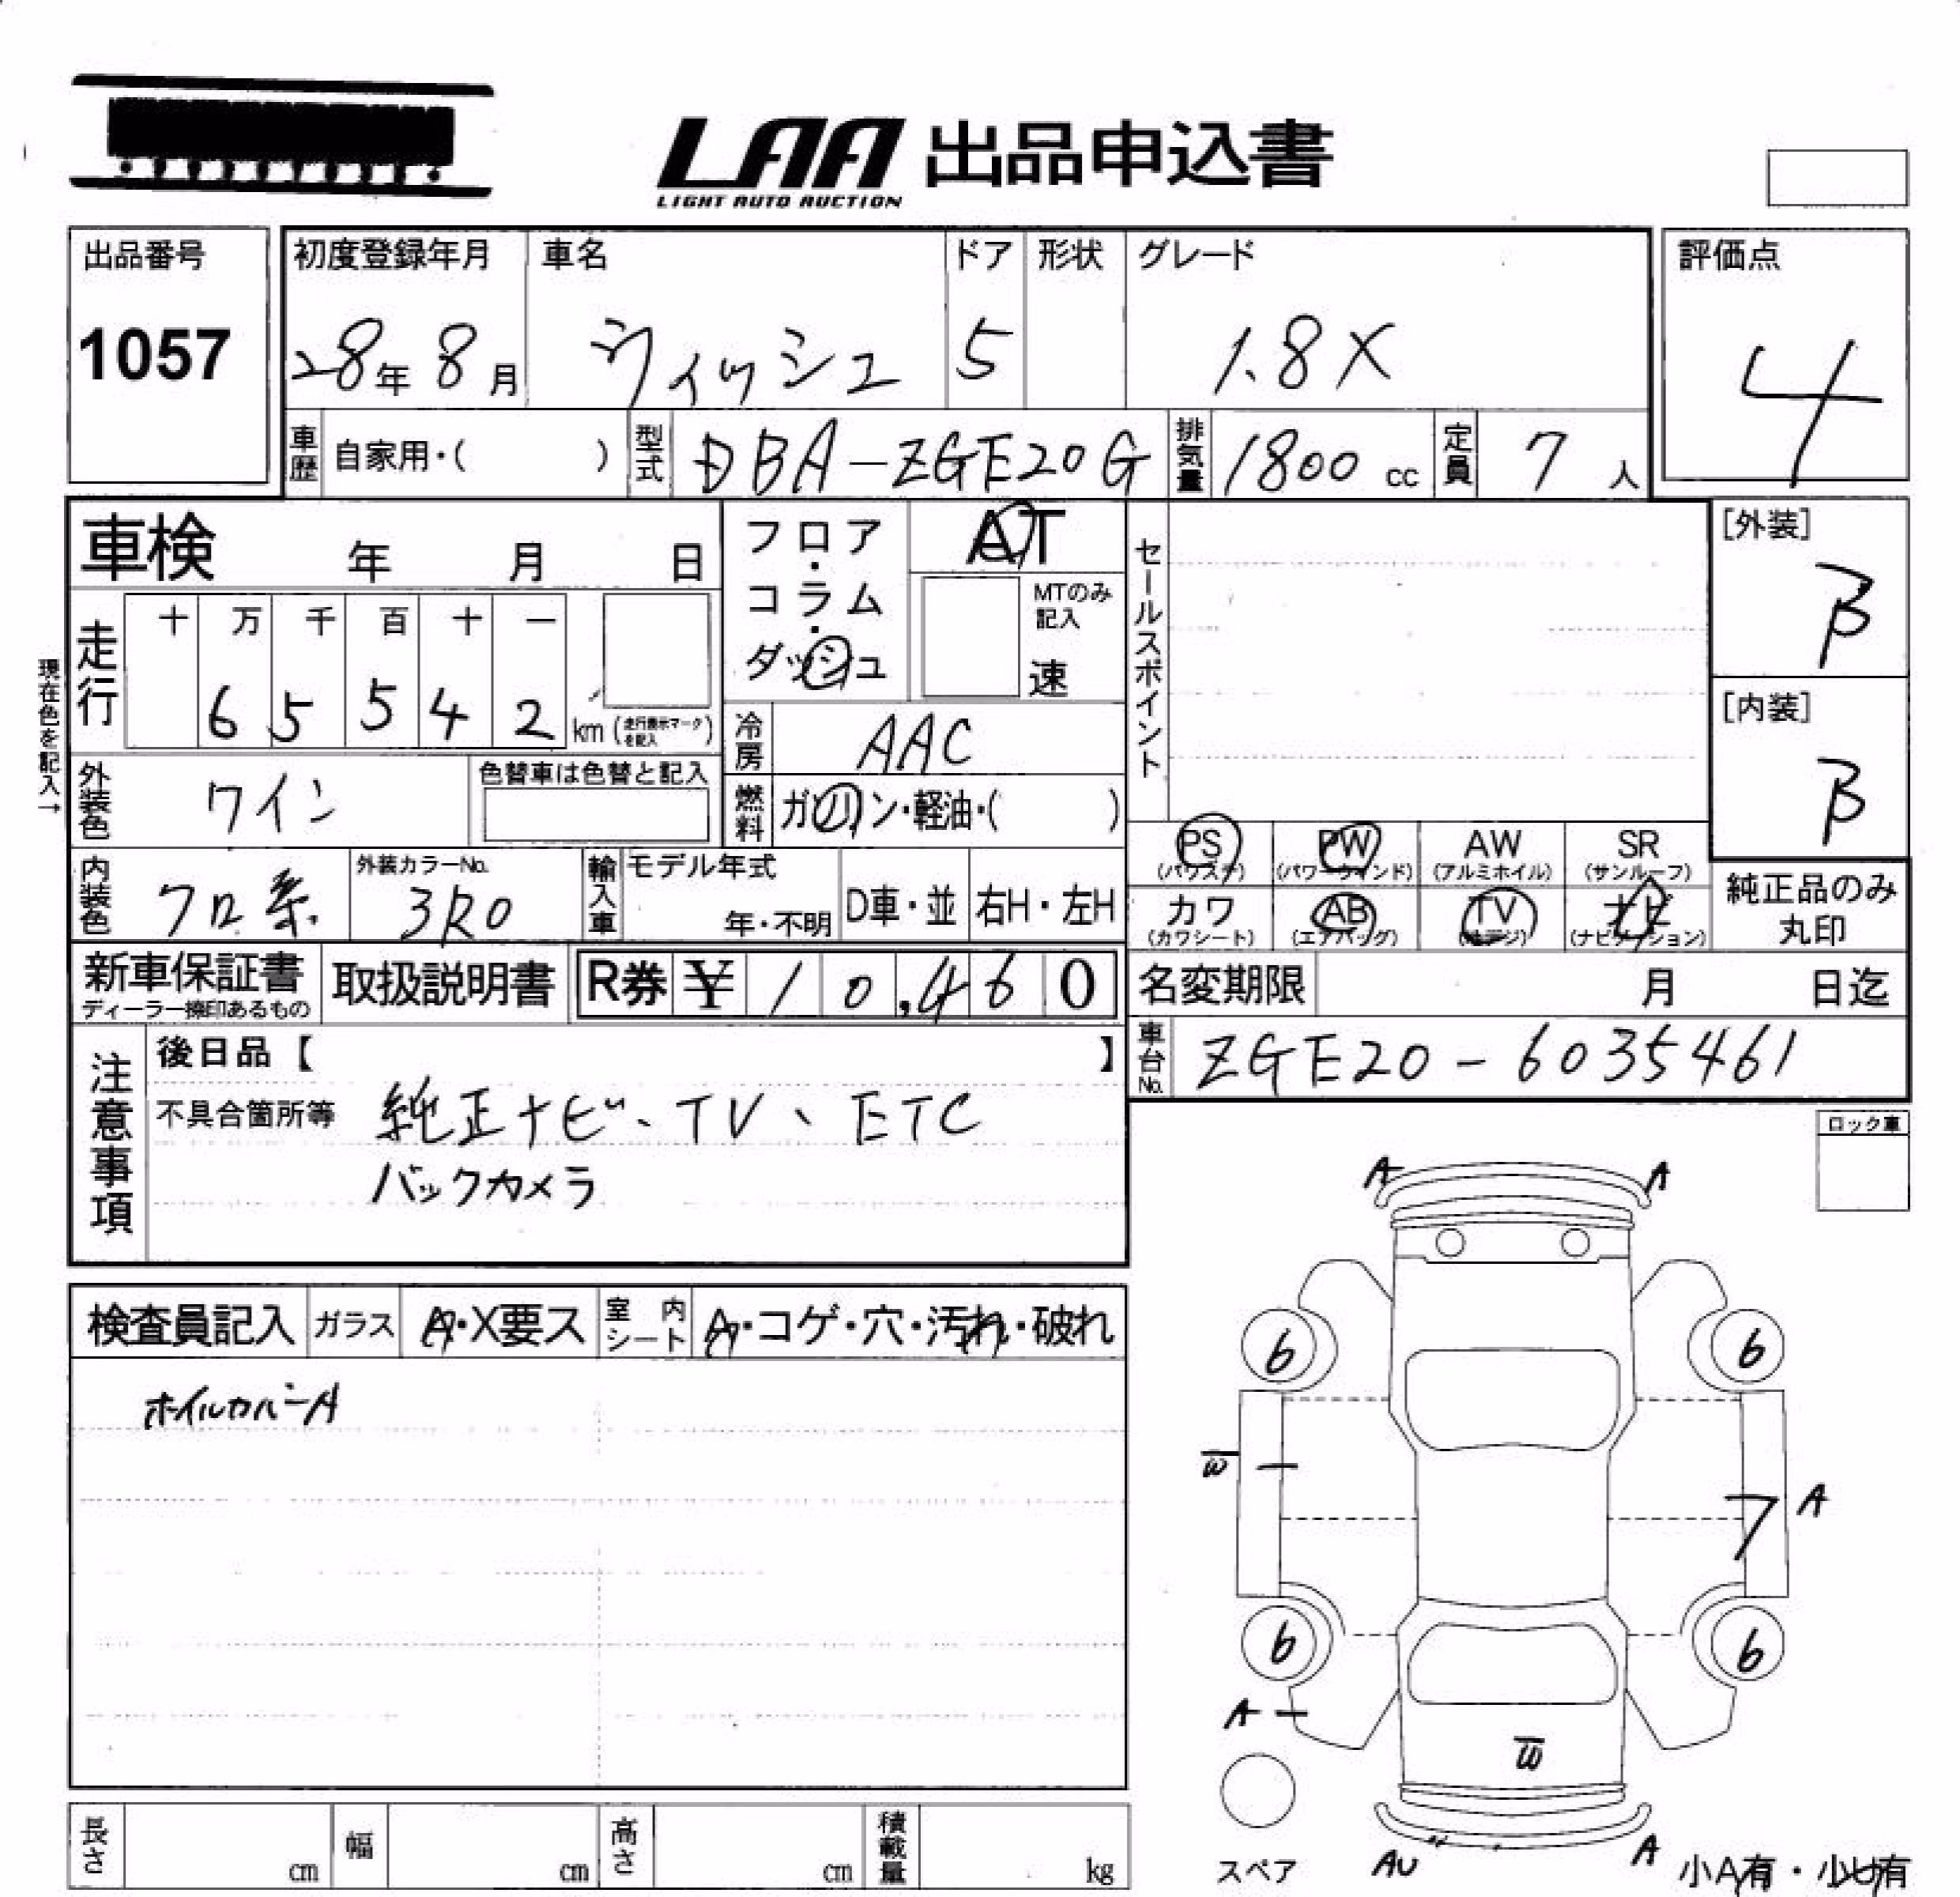 LAA 出品申込書
LIGHT AUTO AUCTION
出品番号 初度登録年月 車名 ドア 形状 グレード 評価点
1057 28年 8月 ウィッシュ 5 1.8X 4
車歴 自家用・( ) 型式 DBA-ZGE20G 排気量 1800 cc 定員 7 人
車検 年 月 日
フロア・コラム・ダッシュ
AT
MTのみ記入
速
セールスポイント
[外装]
B
[内装]
B
現在色を記入→
走行 十 万 千 百 十 一
6 5 5 4 2 km (走行表示マークを記入)
冷房 AAC
外装色 ワイン 色替車は色替と記入
燃料 ガソリン・軽油・( )
内装色 クロ系 外装カラーNo. 3R0
輸入車 モデル年式 年・不明 D車・並 右H・左H
PS PW AW SR
(パワステ) (パワーウィンド) (アルミホイル) (サンルーフ)
カワ AB TV ナビ
(カワシート) (エアバッグ) (地デジ) (ナビゲーション)
純正品のみ
丸印
新車保証書 取扱説明書 R券 ¥ 10,460
ディーラー捺印あるもの
名変期限 月 日迄
車台No. ZGE20-6035461
注意事項
後日品【 】
不具合箇所等 純正ナビ、TV、ETC
バックカメラ
ロック車
A A
検査員記入 ガラス A・X要ス 室内シート A・コゲ・穴・汚れ・破れ
ホイルカバーA
6 6
W
A
6 6
A
W
スペア AU A 小A有・小U有
長さ cm 幅 cm 高さ cm 積載量 kg